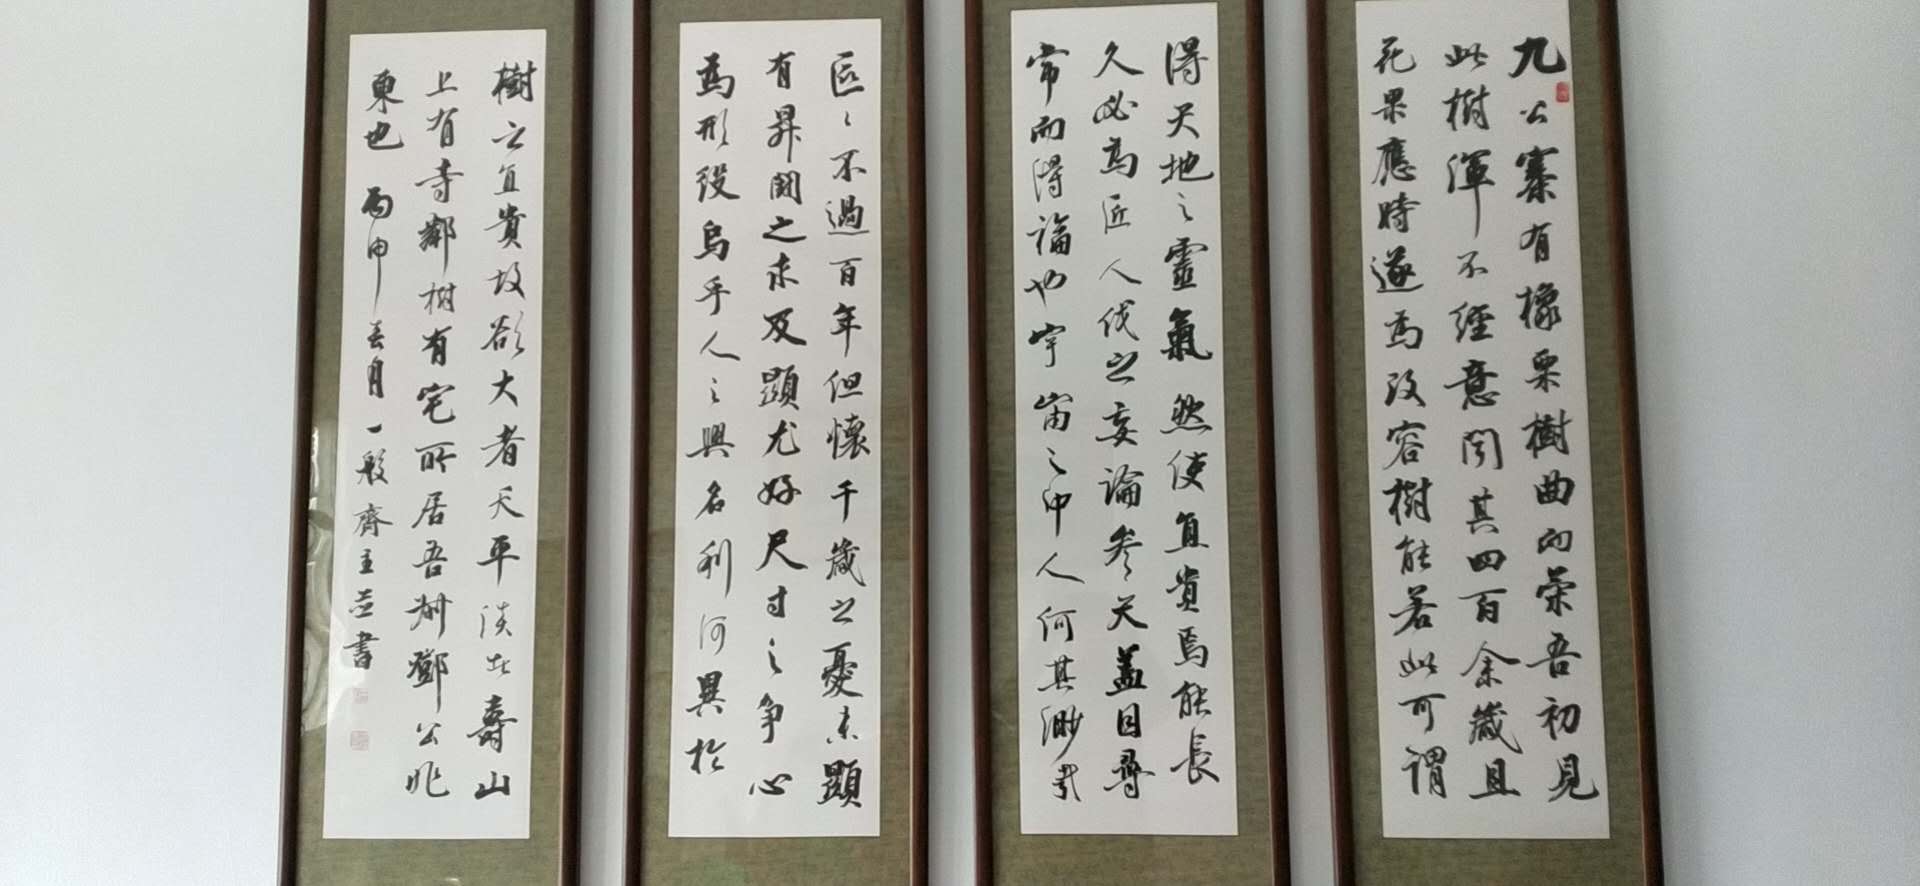 九公寨有橡栗樹曲而榮吾初見
此樹渾不經意聞其四百余歲且
花果應時遂為改容樹能若此可謂
得天地之靈氣然使直貴焉能長
久必為匠人伐之妄論參天蓋日尋
常而得福也宇宙之中人何其渺哉
區區不過百年但懷千歲之憂未顯
有昇鬪之求及顯尤好尺寸之爭心
為形役烏乎人之興名利何異於
樹之直貴故欲大者天平淡在壽山
上有寺鄰樹有宅所居吾尉鄧公兆
東也 丙申春月一般齋主 書